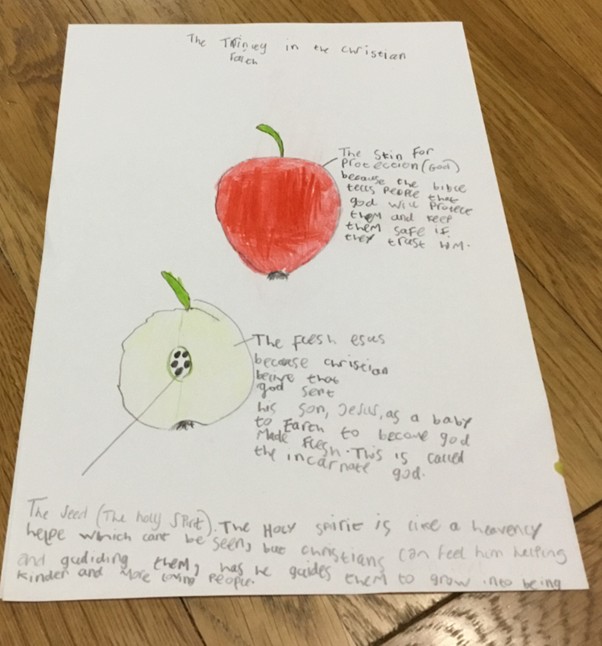 The Trinity in the christian
Faith
The Skin for
Protection (God)
because the bible
tells people that
god will Protect
them and keep
them safe if
they trust HM.
The Flesh esus
because christian
belive that
god sent
his son, Jesus, as a baby
to Earth to become god
Made Flesh. This is called
the incarnate god.
The Seed (The holly Spirt). The HOLY spirit is like a heavenly
helpe which cant be seen, but christians can feel him helping
and gudiding them, has he guides them to grow into being
kinder and More loving people.